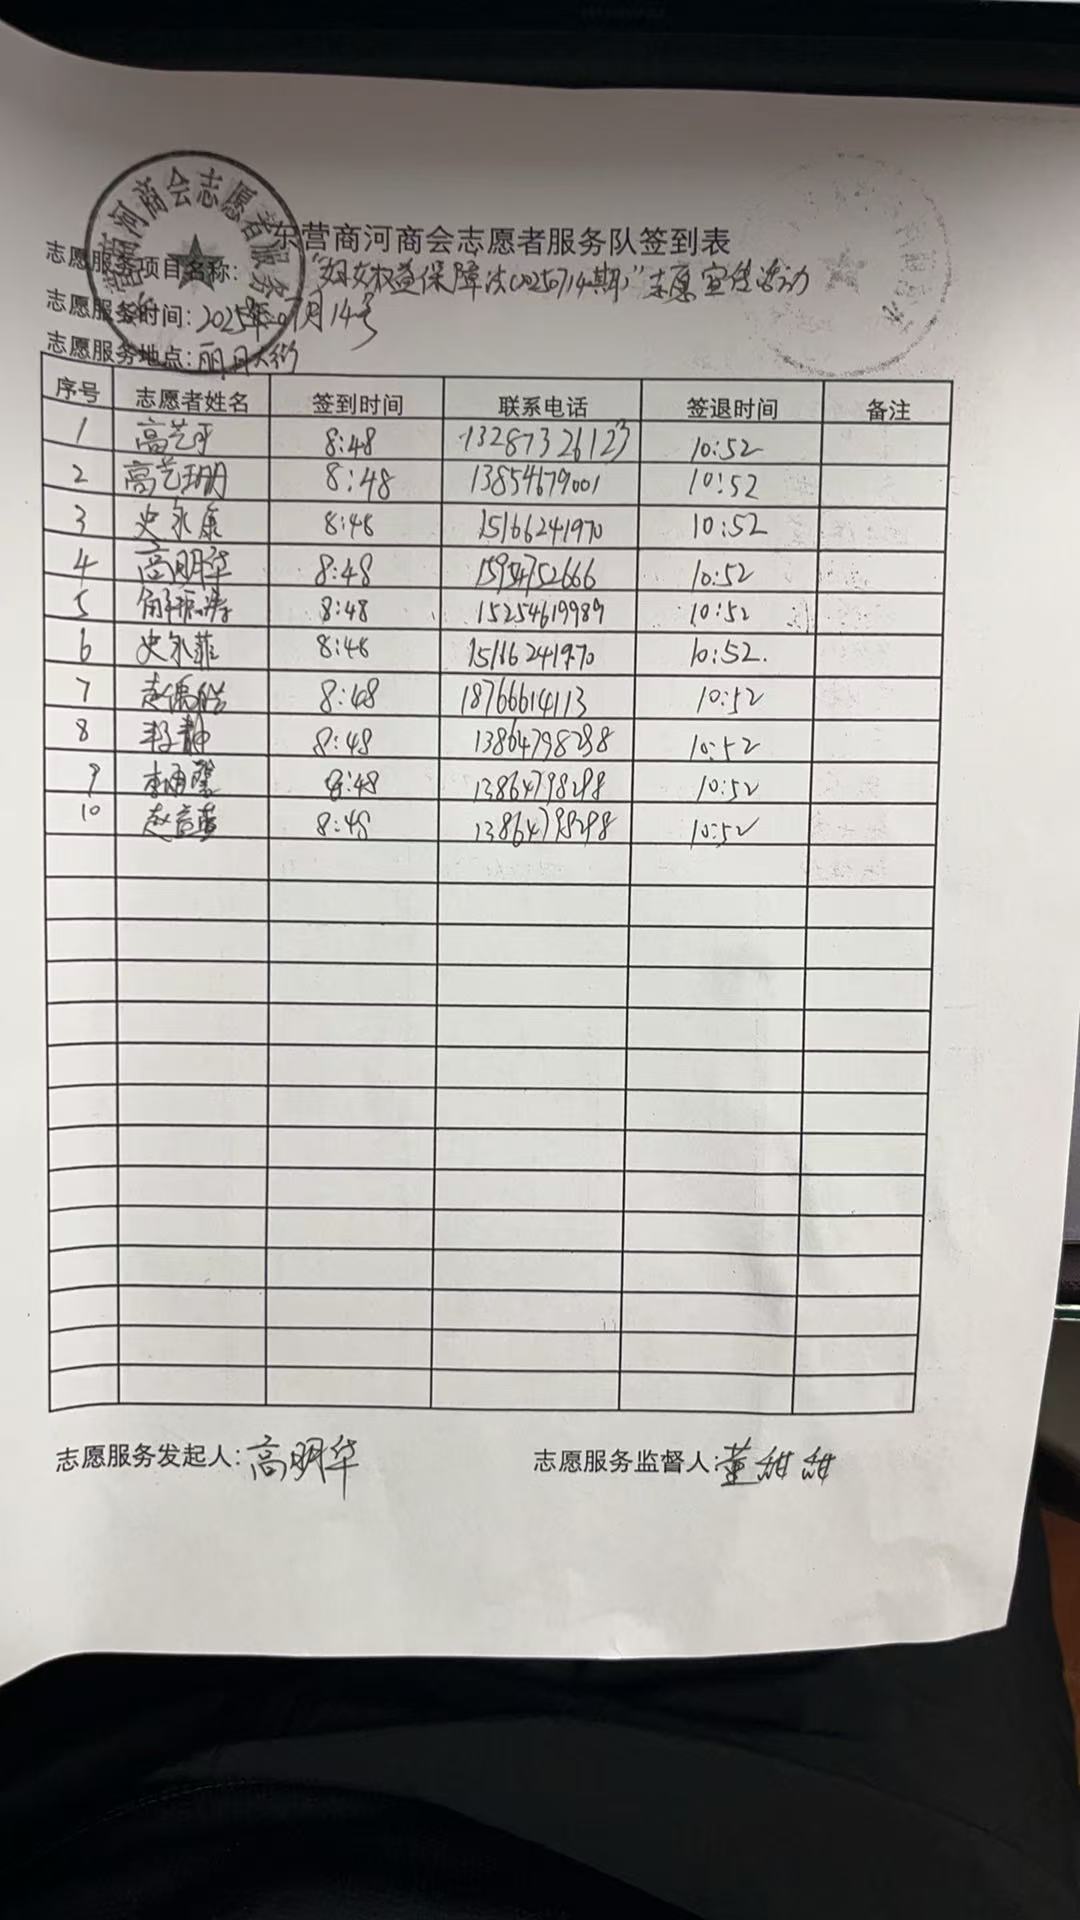 东营商河商会志愿者服务队签到表
志愿服务项目名称：“妇女权益保障法(20250714期)”志愿宣传活动
志愿服务时间：2025年07月14号
志愿服务地点：丽日大街
序号 志愿者姓名 签到时间 联系电话 签退时间 备注
1 高艺 8:48 13287326123 10:52
2 高艺珊 8:48 13854679001 10:52
3 史永康 8:48 15166241970 10:52
4 高明华 8:48 15954752666 10:52
5 8:48 15254619989 10:52
6 史永菲 8:48 15166241970 10:52.
7 赵 8:48 18766614113 10:52
8 静 8:48 13864798298 10:52
9 李雨馨 8:48 13864798298 10:52
10 赵 8:48 13864798298 10:52
志愿服务发起人：高明华 志愿服务监督人：董甜甜